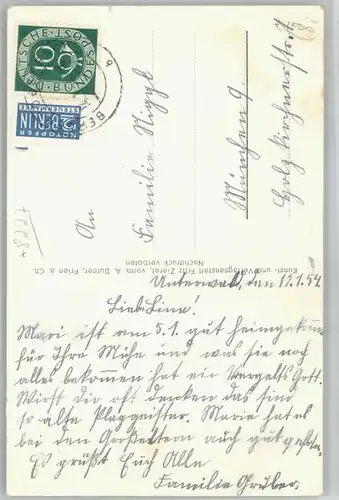 DEUTSCHE BUNDESPOST
10
NOTOPFER
2 BERLIN
STEUERMARKE
An
Familie Niggl
München 9
77284
Kunst- und Verlagsanstalt Fritz Zierer, vorm. A. Durner, Prien a. Ch.
Nachdruck verboten
Unterwald, den 13.1.54.
Liebe Lina!
Mari ist am 5.1. gut heimgekommen
für Ihre Mühe und was sie noch
alles bekommen hat ein Vergelts Gott.
Wirst dir oft denken das sind
so alte Plaggeister. Marie hat es
bei den Großeltern auch gut gefallen.
Es grüßt Euch Alle
Familie Gruber.